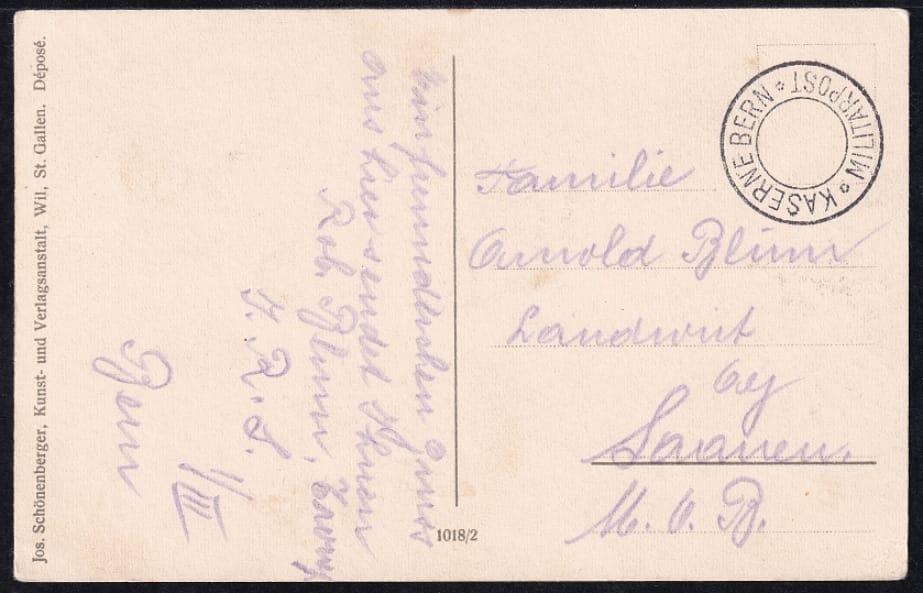 Jos. Schönenberger, Kunst- und Verlagsanstalt, Wil, St. Gallen. Déposé.
Gruss
hier sendet Ihnen
Rob. Blum,
R. S.
/III
Bern
1018/2
KASERNE BERN * MILITÄRPOST *
Familie
Arnold Blum
Landwirt
Saanen.
M. O. B.